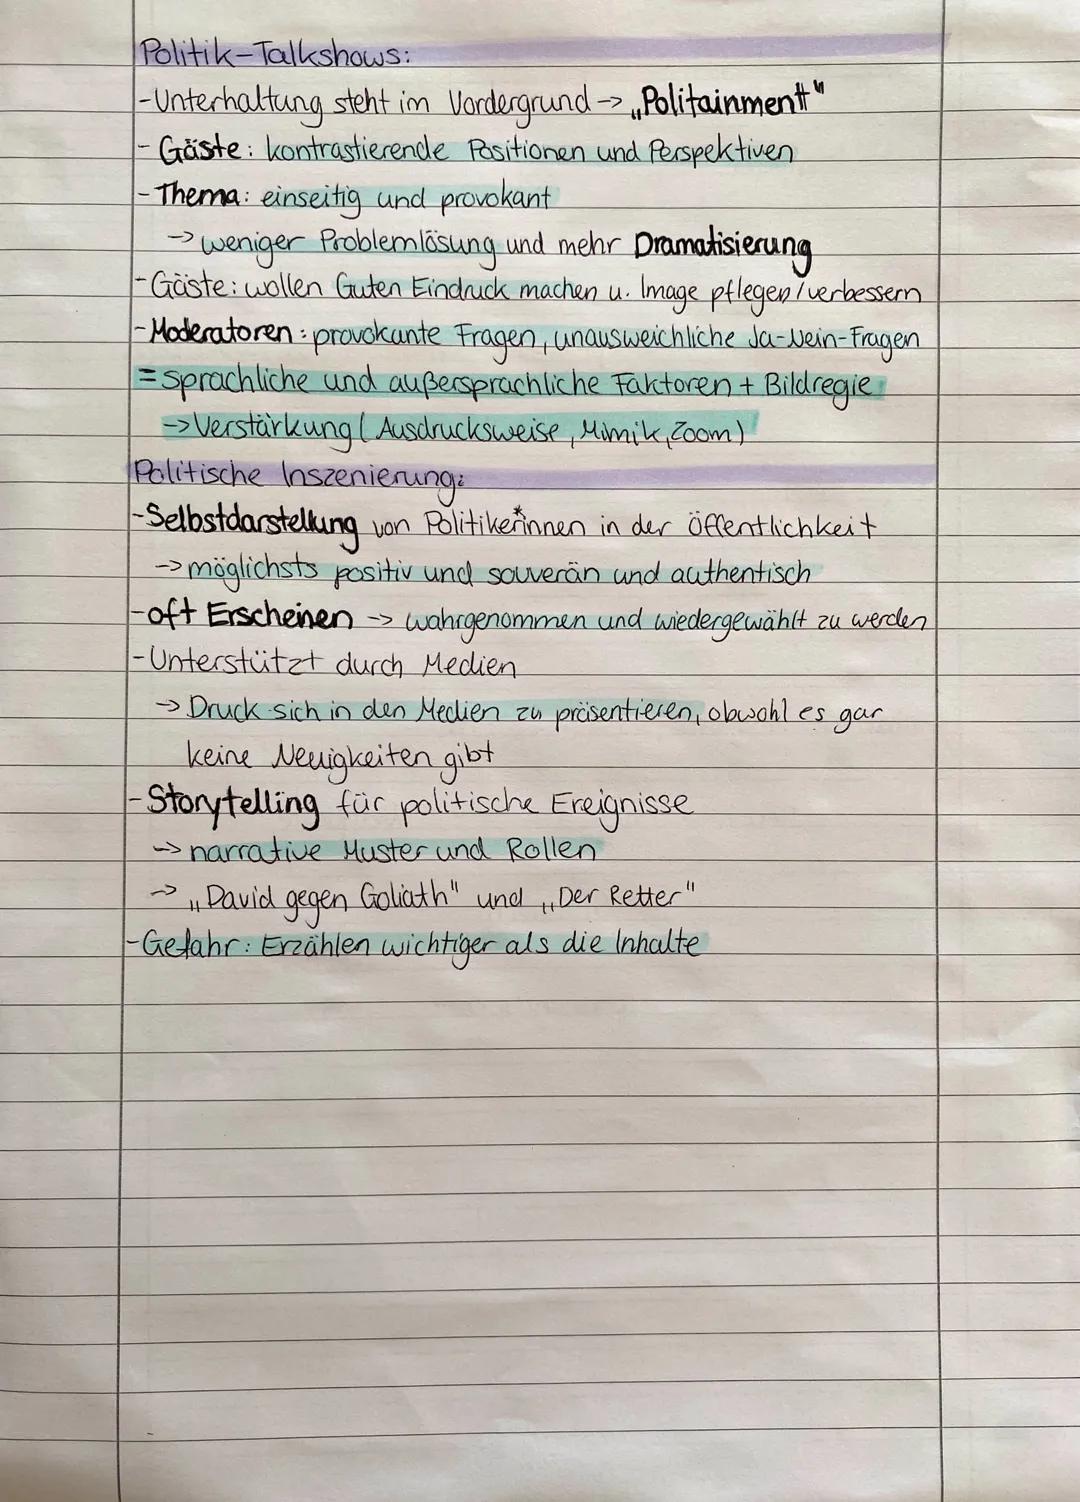 Politik-Talkshows:
-Unterhaltung steht im Vordergrund -> „Politainment"
- Gäste: kontrastierende Positionen und Perspektiven
- Thema: einseitig und provokant
-> weniger Problemlösung und mehr Dramatisierung
-Gäste: wollen Guten Eindruck machen u. Image pflegen/verbessern
-Moderatoren: provokante Fragen, unausweichliche Ja-Nein-Fragen
= sprachliche und außersprachliche Faktoren + Bildregie
-> Verstärkung (Ausdrucksweise, Mimik, Zoom)
Politische Inszenierung:
-Selbstdarstellung von Politiker*innen in der Öffentlichkeit
-> möglichsts positiv und souverän und authentisch
-oft Erscheinen -> wahrgenommen und wiedergewählt zu werden
-Unterstützt durch Medien
-> Druck sich in den Medien zu präsentieren, obwohl es gar
keine Neuigkeiten gibt
-Storytelling für politische Ereignisse
-> narrative Muster und Rollen
-> „David gegen Goliath" und „Der Retter"
-Gefahr: Erzählen wichtiger als die Inhalte